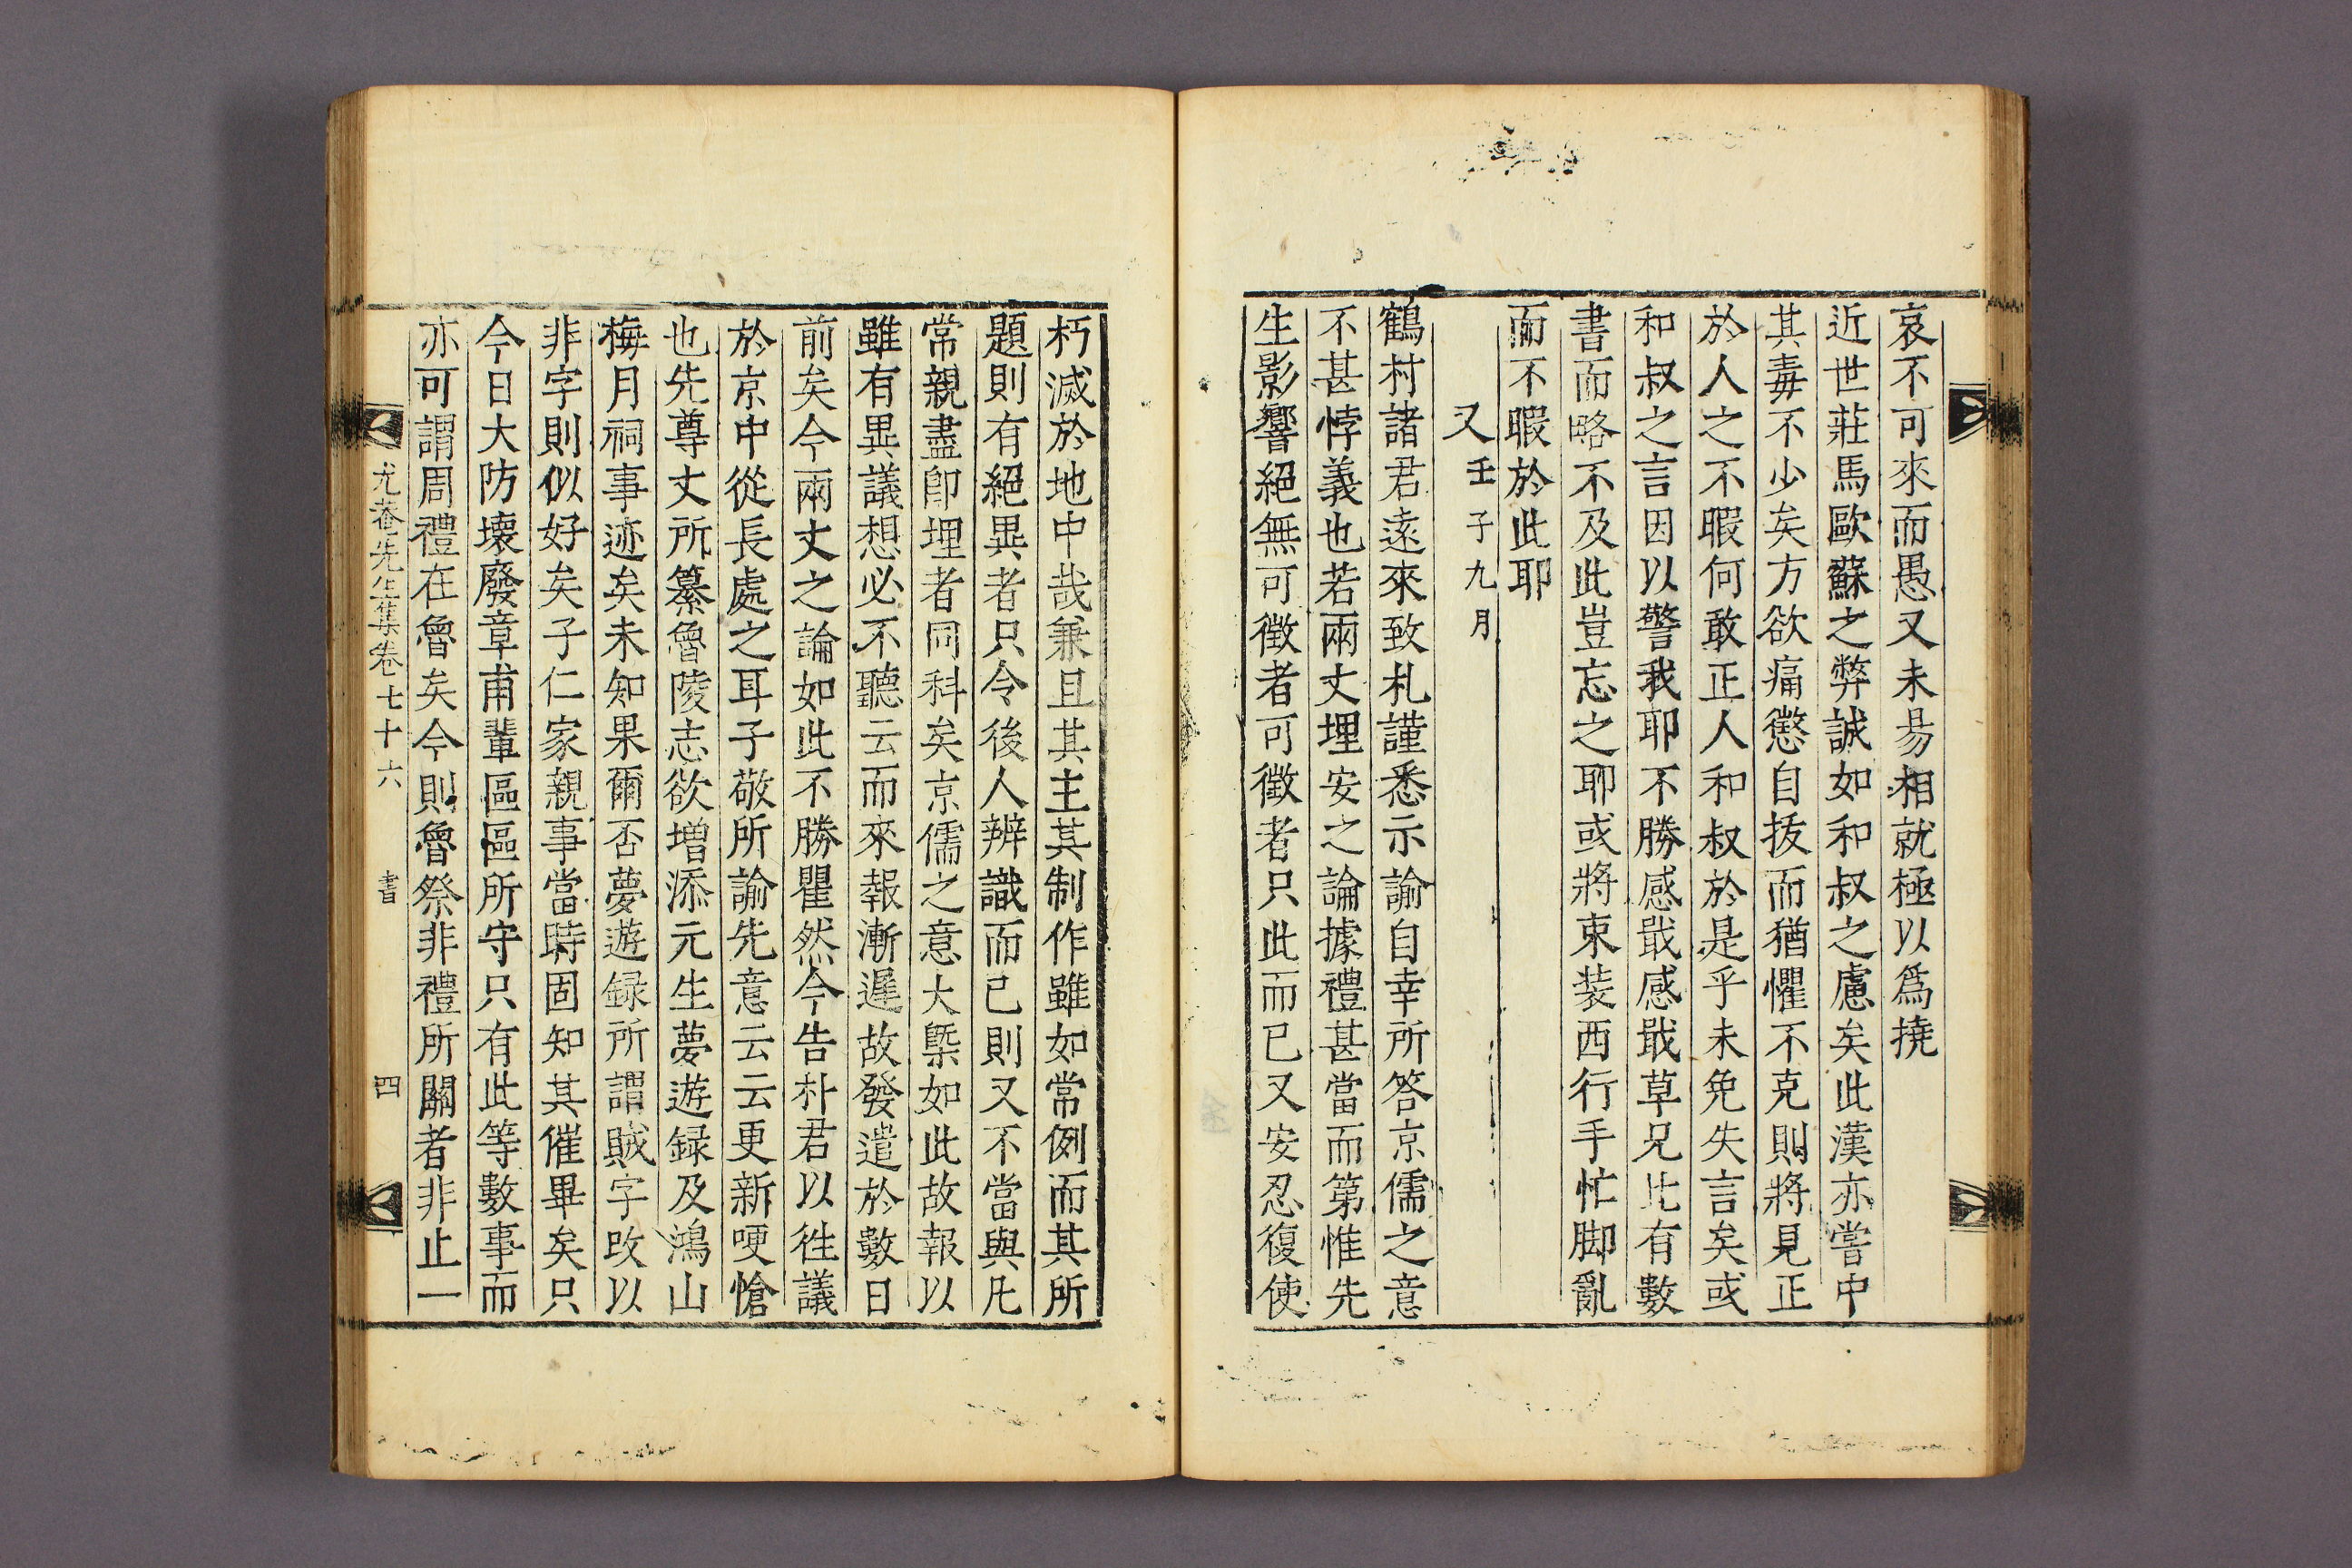 哀不可來而愚又未易相就極以爲撓
近世莊馬歐蘇之弊誠如和叔之慮矣此漢亦嘗中
其毒不少矣方欲痛懲自拔而猶懼不克則將見正
於人之不暇何敢正人和叔於是乎未免失言矣或
和叔之言因以警我耶不勝感戢感戢草兄比有數
書而略不及此豈忘之耶或將束装西行手忙脚亂
而不暇於此耶
又壬子九月
鶴村諸君遠來致札謹悉示諭自幸所答京儒之意
不甚悖義也若兩丈埋安之論據禮甚當而第惟先
生影響絕無可徵者可徵者只此而已又安忍復使
朽滅於地中哉兼且其主其制作雖如常例而其所
題則有絕異者只令後人辨識而已則又不當與凡
常親盡卽埋者同科矣京儒之意大槩如此故報以
雖有異議想必不聽云而來報漸遲故發遣於數日
前矣今兩丈之論如此不勝瞿然今告朴君以徃議
於京中從長處之耳子敬所諭先意云云更新哽愴
也先尊丈所纂魯陵志欲增添元生夢遊録及鴻山
梅月祠事迹矣未知果爾否夢遊録所謂賊字改以
非字則似好矣子仁家親事當時固知其催畢矣只
今日大防壞廢章甫輩區區所守只有此等數事而
亦可謂周禮在魯矣今則魯祭非禮所關者非止一
尤菴先生集卷七十六 書 四